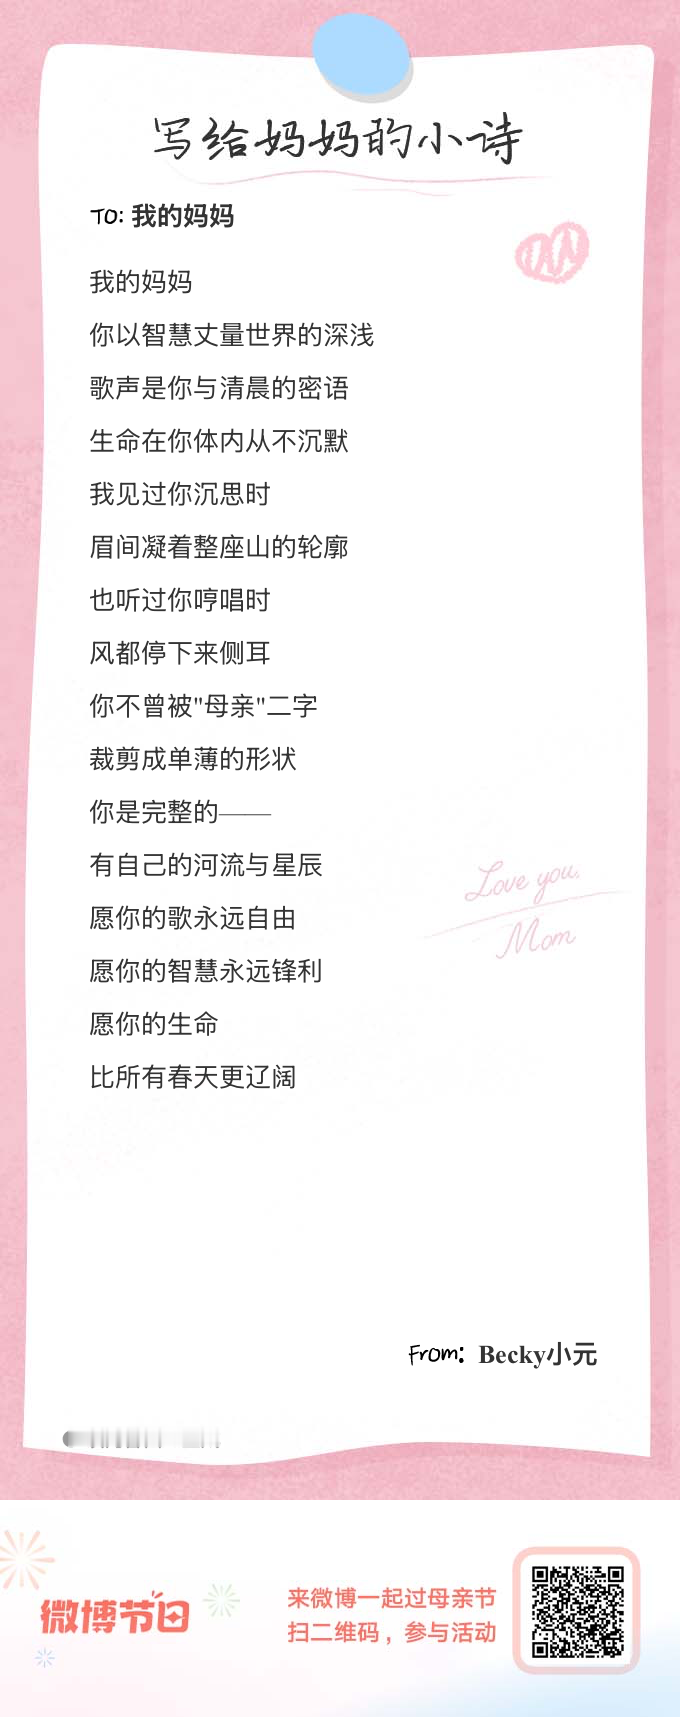 写给妈妈的小诗
TO: 我的妈妈
我的妈妈
你以智慧丈量世界的深浅
歌声是你与清晨的密语
生命在你体内从不沉默
我见过你沉思时
眉间凝着整座山的轮廓
也听过你哼唱时
风都停下来侧耳
你不曾被"母亲"二字
裁剪成单薄的形状
你是完整的——
有自己的河流与星辰
愿你的歌永远自由
愿你的智慧永远锋利
愿你的生命
比所有春天更辽阔
Love you,
Mom
From: Becky小元
微博节日
来微博一起过母亲节
扫二维码，参与活动